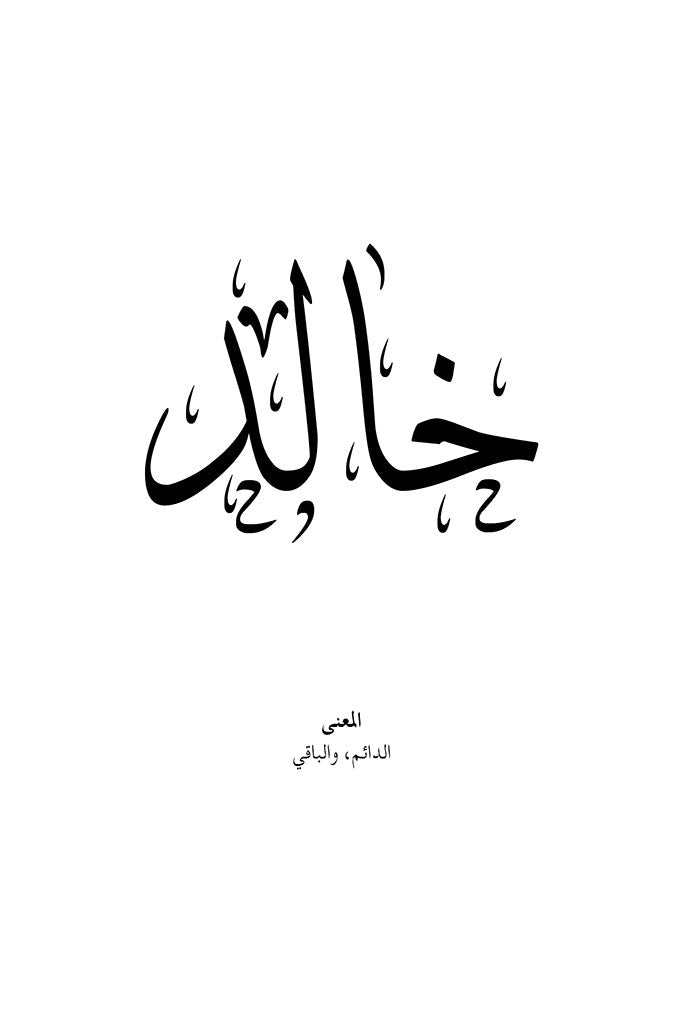 خالد
المعنى
الدائم، والباقي